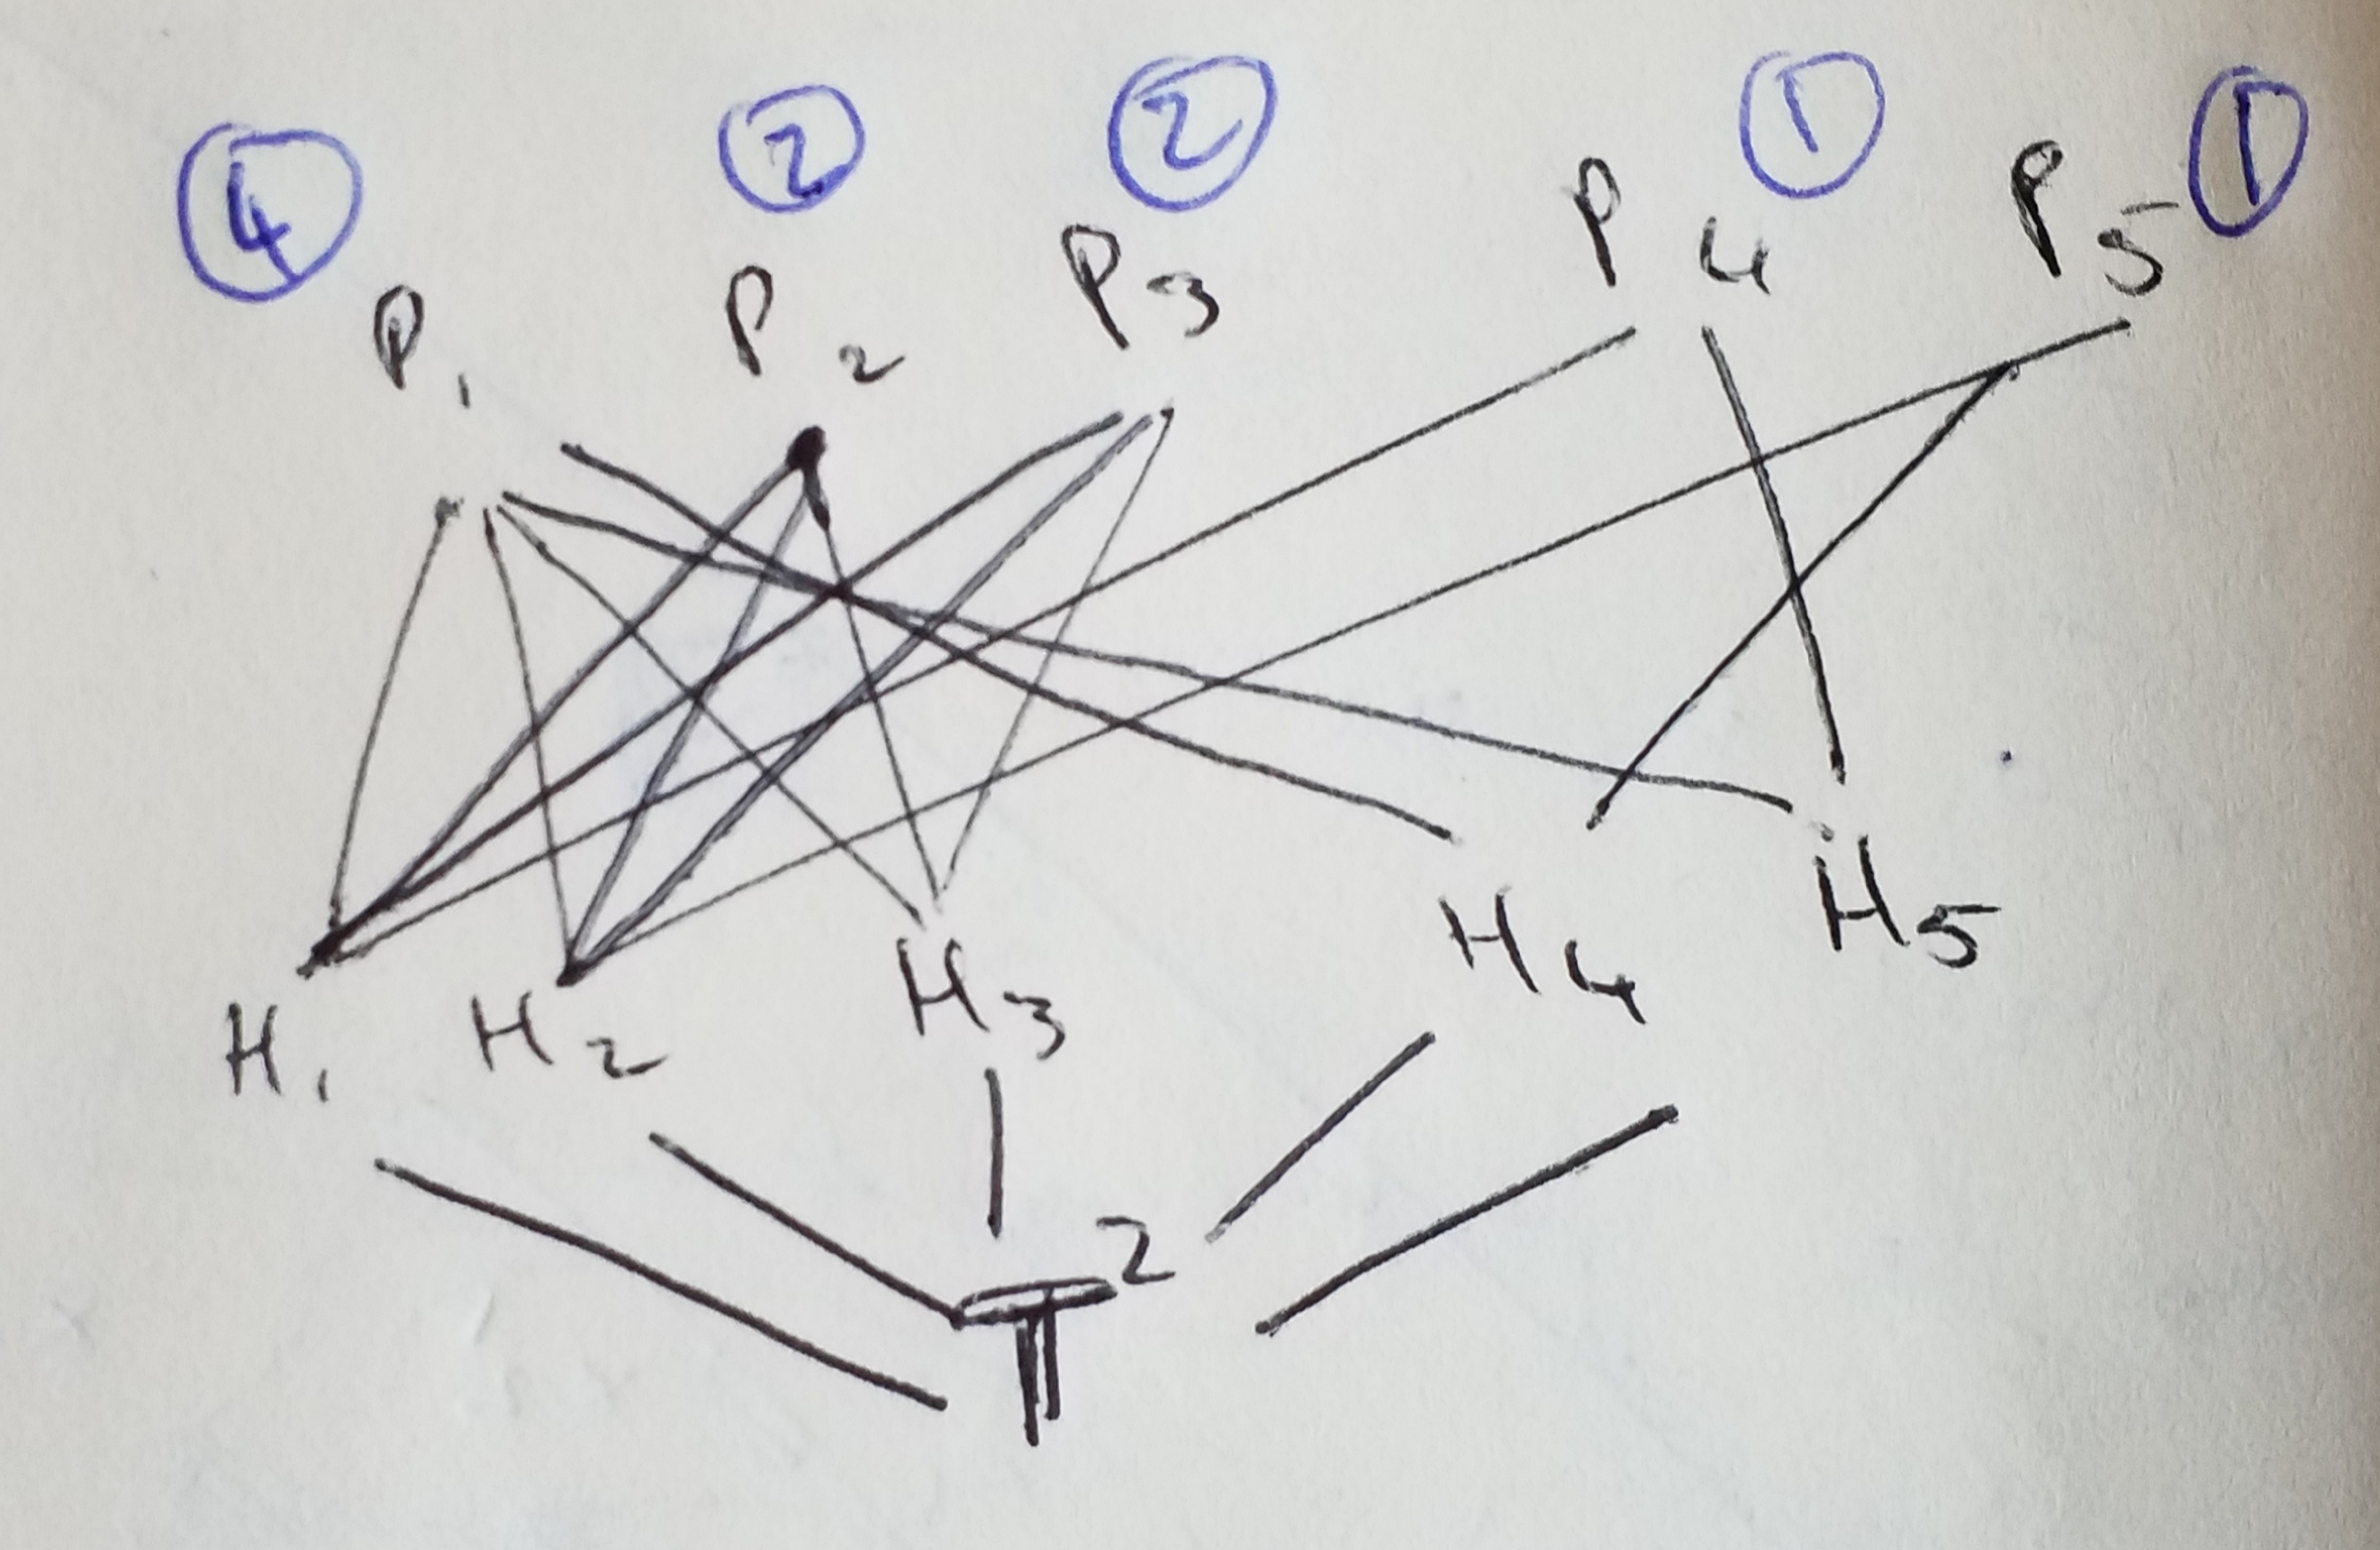 4 2 2 1 1
P1 P2 P3 P4 P5
H1 H2 H3 H4 H5
T2